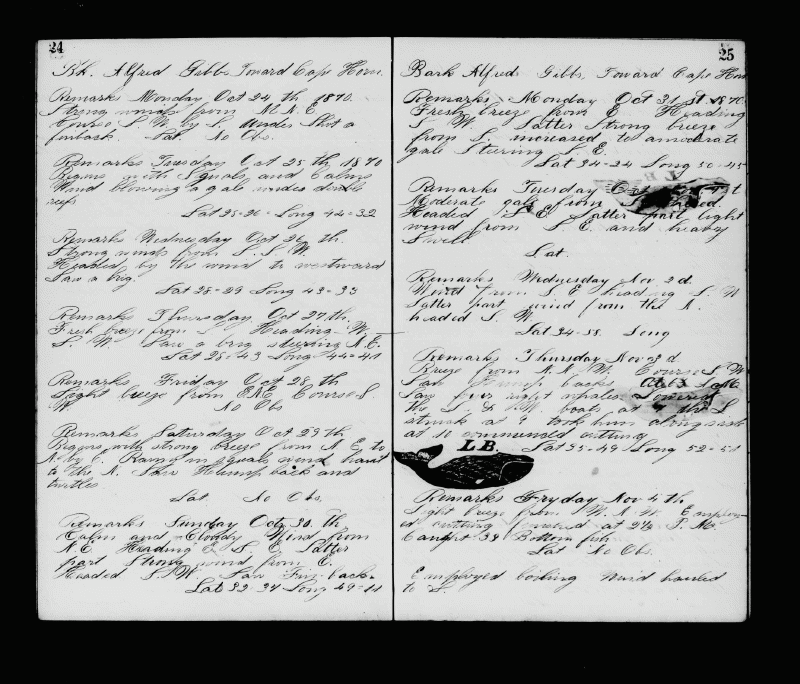 24
Bk. Alfred Gibbs Toward Cape Horn.
Remarks Monday Oct 24 th 1870.
Strong winds from N. N. E.
Course S. W by S. Under Shot a
finback. Lat. No Obs.
Remarks Tuesday Oct 25 th 1870
Begins with Squals and Calms
Wind blowing a gale under double
reefs
Lat 25-26- Long 44-32
Remarks Wednesday Oct 26 th.
Strong winds from S. S. W.
Headed by the wind to westward
Saw a brig.
Lat 25-29 Long 43-33
Remarks Thursday Oct 27th.
Fresh breeze from Heading W.
S. W. Saw a brig steering N. E.
Lat 28-43 Long 44-41
Remarks Friday Oct 28 th
Light breeze from ENE Course S.
W. No Obs
Remarks Saturday Oct 29 th
Begins with strong breeze from N. E. to
N. by E. Rain in squals wind hauls
to the N. Saw Hump back and
turtles
Lat No Obs.
Remarks Sunday Oct 30. th
Calms and Cloudy Wind from
N. E. Heading E. S. E. Latter
part Strong wind from E.
Headed S. W. Saw Fin-back.
Lat 32-34 Long 49-11
25
Bark Alfred Gibbs, Toward Cape Horn
Remarks Monday Oct 31 st 1870.
Fresh breeze from E Heading
S. W. Latter Strong breeze
from S. increased to a moderate
gale Steering S. E.
Lat 34-24 Long 50-45
Remarks Tuesday
Moderate gale from
Headed S. E. Latter part light
wind from S. E. and heavy
Swell
Lat.
Remarks Wednesday Nov 2 d.
Wind from S. E heading S. W
Latter part wind from the N.
headed S. W.
Lat 34-58. Long
Remarks Thursday Nov 3 d
Breeze from N. N. W. Course S. W
Saw Hump backs
Saw four right whales Lowered
the S. & W. boats at the L
struck at 9 took him along side
at 10 commenced cutting
L.B. Lat 35-49 Long 52-51
Remarks Fryday Nov 4 th
Light breeze from W. N. W. Employ-
ed cutting finished at 2½ P. M.
Caught 39 Bottom fish
Lat No Obs.
Employed boiling wind hauled
to S.